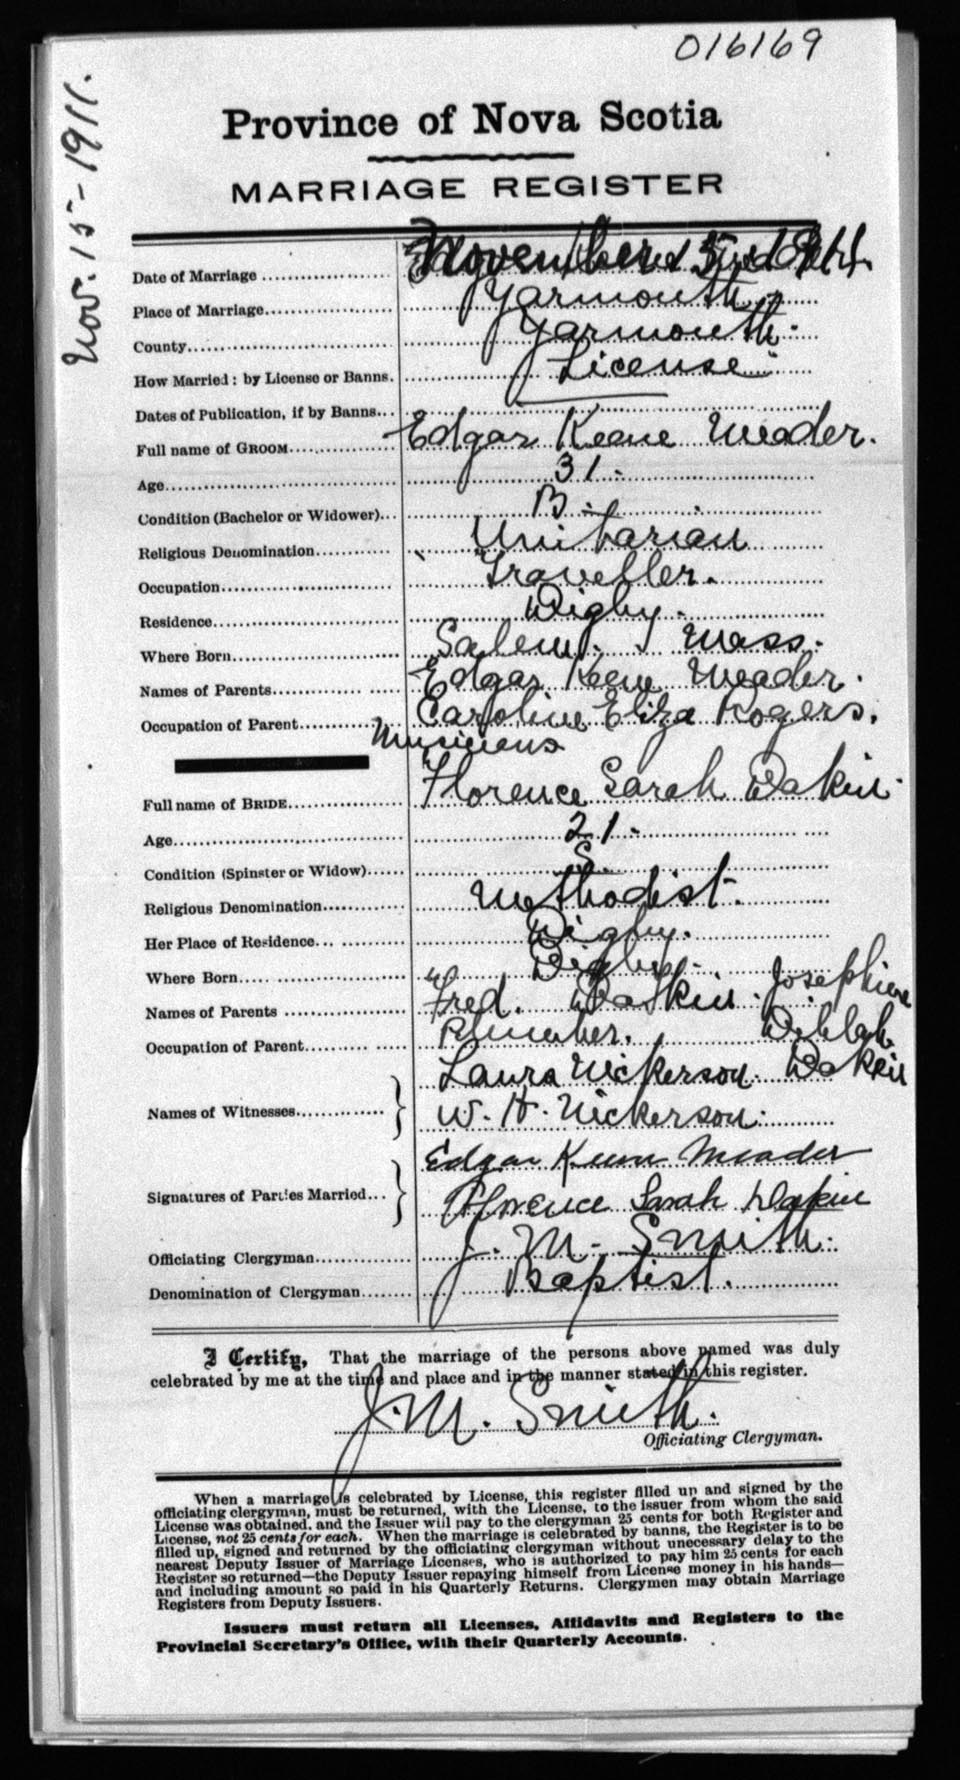 016169
Nov. 15-1911.
Province of Nova Scotia
MARRIAGE REGISTER
Date of Marriage November 15
Place of Marriage Yarmouth,
County Yarmouth.
How Married: by License or Banns. License
Dates of Publication, if by Banns
Full name of GROOM Edgar Keene Meader.
Age 31.
Condition (Bachelor or Widower) B.
Religious Denomination Unitarian
Occupation Traveller.
Residence Digby.
Where Born Salem. Mass.
Names of Parents Edgar Keene Meader.
Occupation of Parent Caroline Eliza Rogers.
Full name of BRIDE Florence Sarah Dakin.
Age 21.
Condition (Spinster or Widow) S.
Religious Denomination Methodist.
Her Place of Residence Digby.
Where Born Digby.
Names of Parents Fred. Dakin. Josephine
Occupation of Parent Plumber.
Laura Nickerson. Dakin
Names of Witnesses W. H. Nickerson.
Edgar Keene Meader
Signatures of Parties Married Florence Sarah Dakin
Officiating Clergyman J. M. Smith.
Denomination of Clergyman Baptist.
I Certify, That the marriage of the persons above named was duly
celebrated by me at the time and place and in the manner stated in this register.
J. M. Smith.
Officiating Clergyman.
When a marriage is celebrated by License, this register filled up and signed by the
officiating clergyman, must be returned, with the License, to the issuer from whom the said
License was obtained, and the Issuer will pay to the clergyman 25 cents for both Register and
License, not 25 cents for each. When the marriage is celebrated by banns, the Register is to be
filled up, signed and returned by the officiating clergyman without unnecessary delay to the
nearest Deputy Issuer of Marriage Licenses, who is authorized to pay him 25 cents for each
Register so returned—the Deputy Issuer repaying himself from License money in his hands—
and including amount so paid in his Quarterly Returns. Clergymen may obtain Marriage
Registers from Deputy Issuers.
Issuers must return all Licenses, Affidavits and Registers to the
Provincial Secretary's Office, with their Quarterly Accounts.